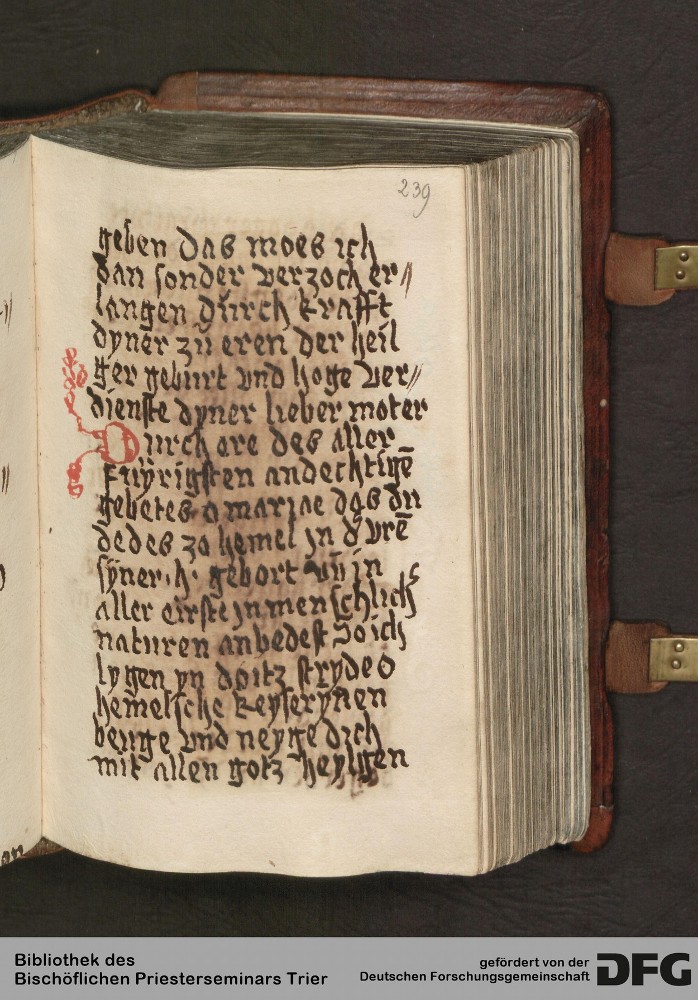 239
geben das moes ich
dan sonder verzoch er//
langen durch krafft
dyner zü eren der heil
ger geburt vnd hoge ver//
dienste dyner lieber moter
Durch are des aller
fuyrigsten andechtigē
gebetes o mariae das du
dedes zo hemel jn d vrē
syner .h. gebort vn̄ in
aller eirste jn menschlich
naturen anbedest So ich
lygen yn doitz stryde o
hemelsche keyserynen
beuge vnd neyge dich
mit allen gotz heylgen
Bibliothek des
Bischöflichen Priesterseminars Trier
gefördert von der
Deutschen Forschungsgemeinschaft
DFG